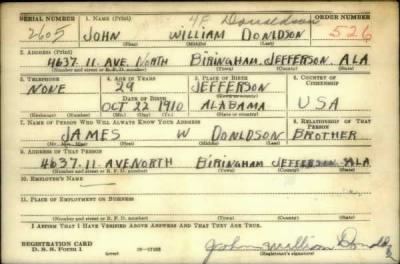 SERIAL NUMBER 1. NAME (Print) 4F Donaldson ORDER NUMBER
2605 JOHN WILLIAM DONLDSON 526
(First) (Middle) (Last)
2. ADDRESS (Print)
4637. 11. AVE. NORTH BIRINGHAM. JEFFERSON. ALA
(Number and street or R. F. D. number) (Town) (County) (State)
3. TELEPHONE 4. AGE IN YEARS 5. PLACE OF BIRTH 6. COUNTRY OF CITIZENSHIP
NONE 29 JEFFERSON
DATE OF BIRTH (Town or county)
OCT 22 1910 ALABAMA USA
(Exchange) (Number) (Mo.) (Day) (Yr.) (State or country)
7. NAME OF PERSON WHO WILL ALWAYS KNOW YOUR ADDRESS 8. RELATIONSHIP OF THAT PERSON
JAMES W DONLDSON BROTHER
(Mr., Mrs., Miss) (First) (Middle) (Last)
9. ADDRESS OF THAT PERSON
4637. 11. AVENORTH BIRINGHAM JEFFERSON. ALA
(Number and street or R. F. D. number) (Town) (County) (State)
10. EMPLOYER'S NAME
11. PLACE OF EMPLOYMENT OR BUSINESS
(Number and street or R. F. D. number) (Town) (County) (State)
I AFFIRM THAT I HAVE VERIFIED ABOVE ANSWERS AND THAT THEY ARE TRUE.
REGISTRATION CARD
D. S. S. Form 1 16-17105 John William
(Registrant's signature)